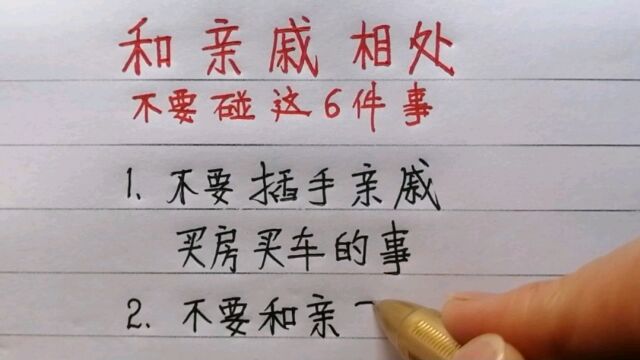 和亲戚相处
不要碰这6件事
1. 不要插手亲戚
买房买车的事
2. 不要和亲